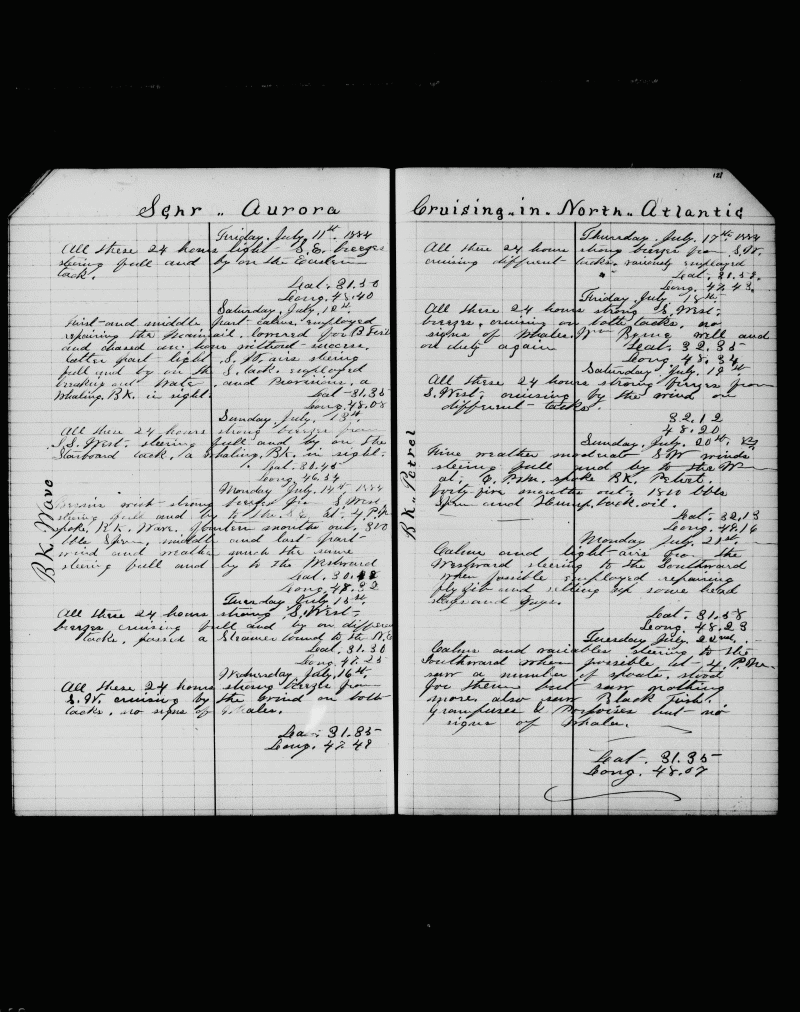 Schr " Aurora
Friday, July 11th 1884
All these 24 hours light S.E. breezes
steering full and by on the Eastern
tack.
Lat. 31.50
Long. 48.40
Saturday, July, 12th
First and middle part calm, employed
repairing the Stainsail, lowered for B Fish
and chased an hour without success.
latter part light S.W. airs steering
full and by on the S. tack. employed
breaking out Water, and Provisions, a
whaling, BK. in sight.
Lat 31.35
Long. 48.08
Sunday July. 13th
All these 24 hours strong breezes from
S.S. West, steering full and by on the
Starboard tack, a whaling, BK. in sight.
Lat. 31.45
Long. 46.54
Monday July. 14th 1884
Begins with strong breezes from S. West
steering full and by to the S.E. at 4 P.M.
spoke, B.K. Wave. fourteen months out, 300
bbls Sperm, middle and last part
wind and weather much the same
steering full and by to the Westward
Lat. 30.
Long. 48.32
BK. Wave
Tuesday July 15th
All these 24 hours strong S. West,
breezes cruising full and by on different
tacks, passed a Steamer bound to the N.E
Lat. 31.30
Long. 47.25
Wednesday July, 16th
All these 24 hours strong breezes from
S.W. cruising by the wind on both
tacks, no signs of Whales.
Lat. 31.35
Long. 47.49
121
Cruising " in " North " Atlantic
Thursday, July. 17th 1884
All these 24 hours strong breezes from S.W.
cruising different tacks, variously employed
Lat. 31.52
Long. 47.43
Friday July 18th
All these 24 hours strong S. West,
breezes, cruising on both tacks, no
signs of Whales. Wm Byrne well and
on duty again
Lat. 32.35
Long. 48.34
Saturday July. 19th
All these 24 hours strong breezes from
S. West, cruising by the wind on
different tacks.
32.12
48.20
Sunday, July. 20th
Fine weather moderate S.W. winds
steering full and by to the W
at, P.M. spoke BK. Petrel.
forty five months out, bbls
Spm and Hump back oil.
Lat. 32.13
Long. 48.16
BK. Petrel
Monday July 21st
Calms and light airs from the
Westward steering to the Southward
when possible employed repairing
flyjib and setting up some head
stays and guys.
Lat. 31.58
Long. 48.23
Tuesday July, 22nd.
Calms and variables steering to the
Southward when possible at 4, P.M.
saw a number of spouts, stood
for them but saw nothing
more, also saw Black fish.
Grampuses & Porpoises but no
signs of Whales.
Lat. 31.35
Long. 48.07